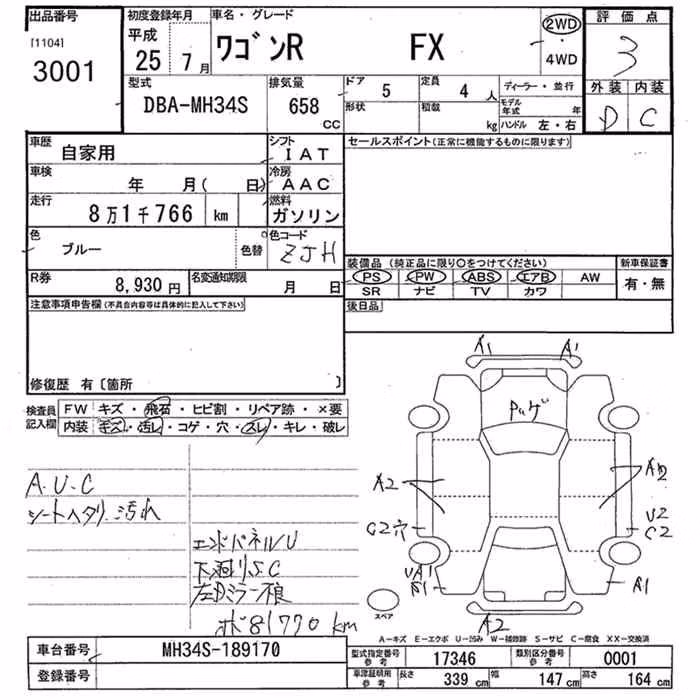 出品番号
[1104]
3001
初度登録年月
平成
25 7月
車名・グレード
ワゴンR FX
2WD
・
4WD
評価点
3
外装 内装
D C
型式
DBA-MH34S
排気量
658
CC
ドア 5
定員 4 人
形状
積載 kg
ディーラー・並行
モデル年式 年
ハンドル 左・右
車歴
自家用
シフト
IAT
車検
年 月( 日)
冷房
AAC
走行
8万1千766 km
燃料
ガソリン
色
ブルー
色替
色コード
ZJH
R券
8,930円
名変通知期限
月 日
セールスポイント(正常に機能するものに限ります)
装備品 (純正品に限り○をつけてください)
PS PW ABS エアB AW
SR ナビ TV カワ
新車保証書
有・無
後日品
注意事項申告欄(不具合内容等は具体的に記入して下さい)
修復歴 有〔箇所 〕
検査員
記入欄
FW キズ・飛石・ヒビ割・リペア跡・×要
内装 キズ・汚レ・コゲ・穴・スレ・キレ・破レ
A.U.C
シートヘタリ.汚れ
エンドパネルU
下廻りS.C
左Dミラー不良
ボ81770km
A1 A1
Pハゲ
A2
A2
C2穴
U2
C2
UA1
A1
A1
A2
スペア
A-キズ E-エクボ U-凹み W-補修跡 S-サビ C-腐食 XX-交換済
車台番号
MH34S-189170
登録番号
型式指定番号
参考
17346
類別区分番号
参考
0001
車庫証明用
参考
長さ 339 cm
幅 147 cm
高さ 164 cm